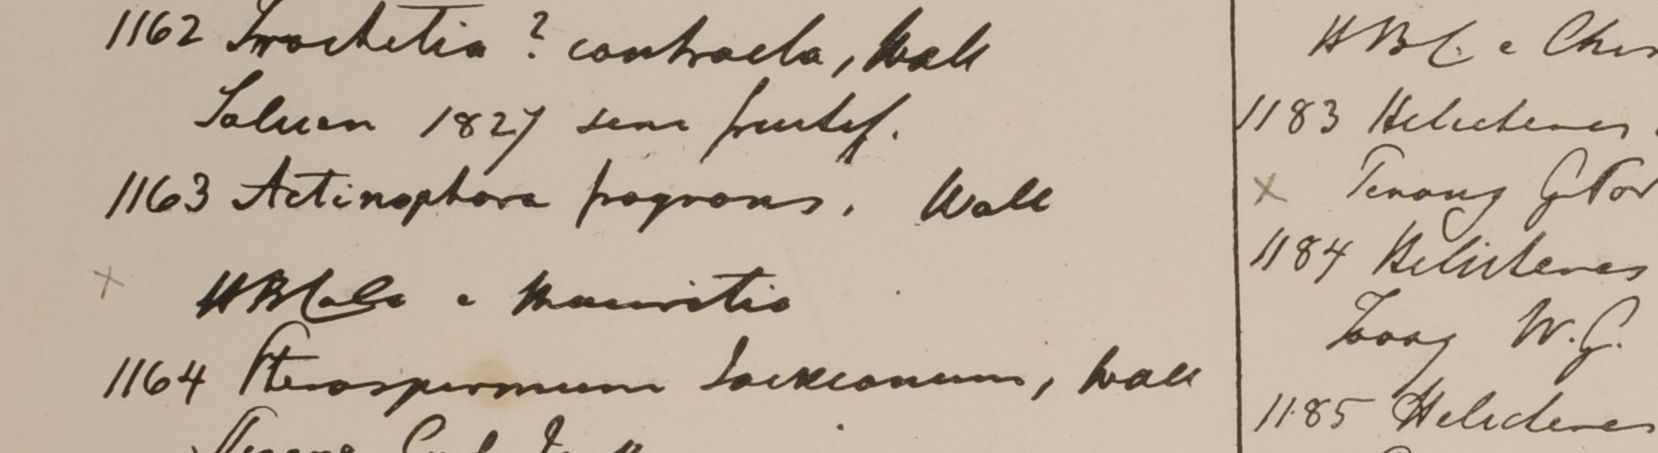 1162 Trochetia ? contracta, Wall
Saluen 1827 sine fructif.
1163 Actinophora fragrans. Wall
x HBCalc e Mauritio
1164 Pterospermum Jackianum, Wall
HBC. e
1183 Helicteres
x Penang G Por
1184 Helicteres
Tavoy W.G.
1185 Helicteres